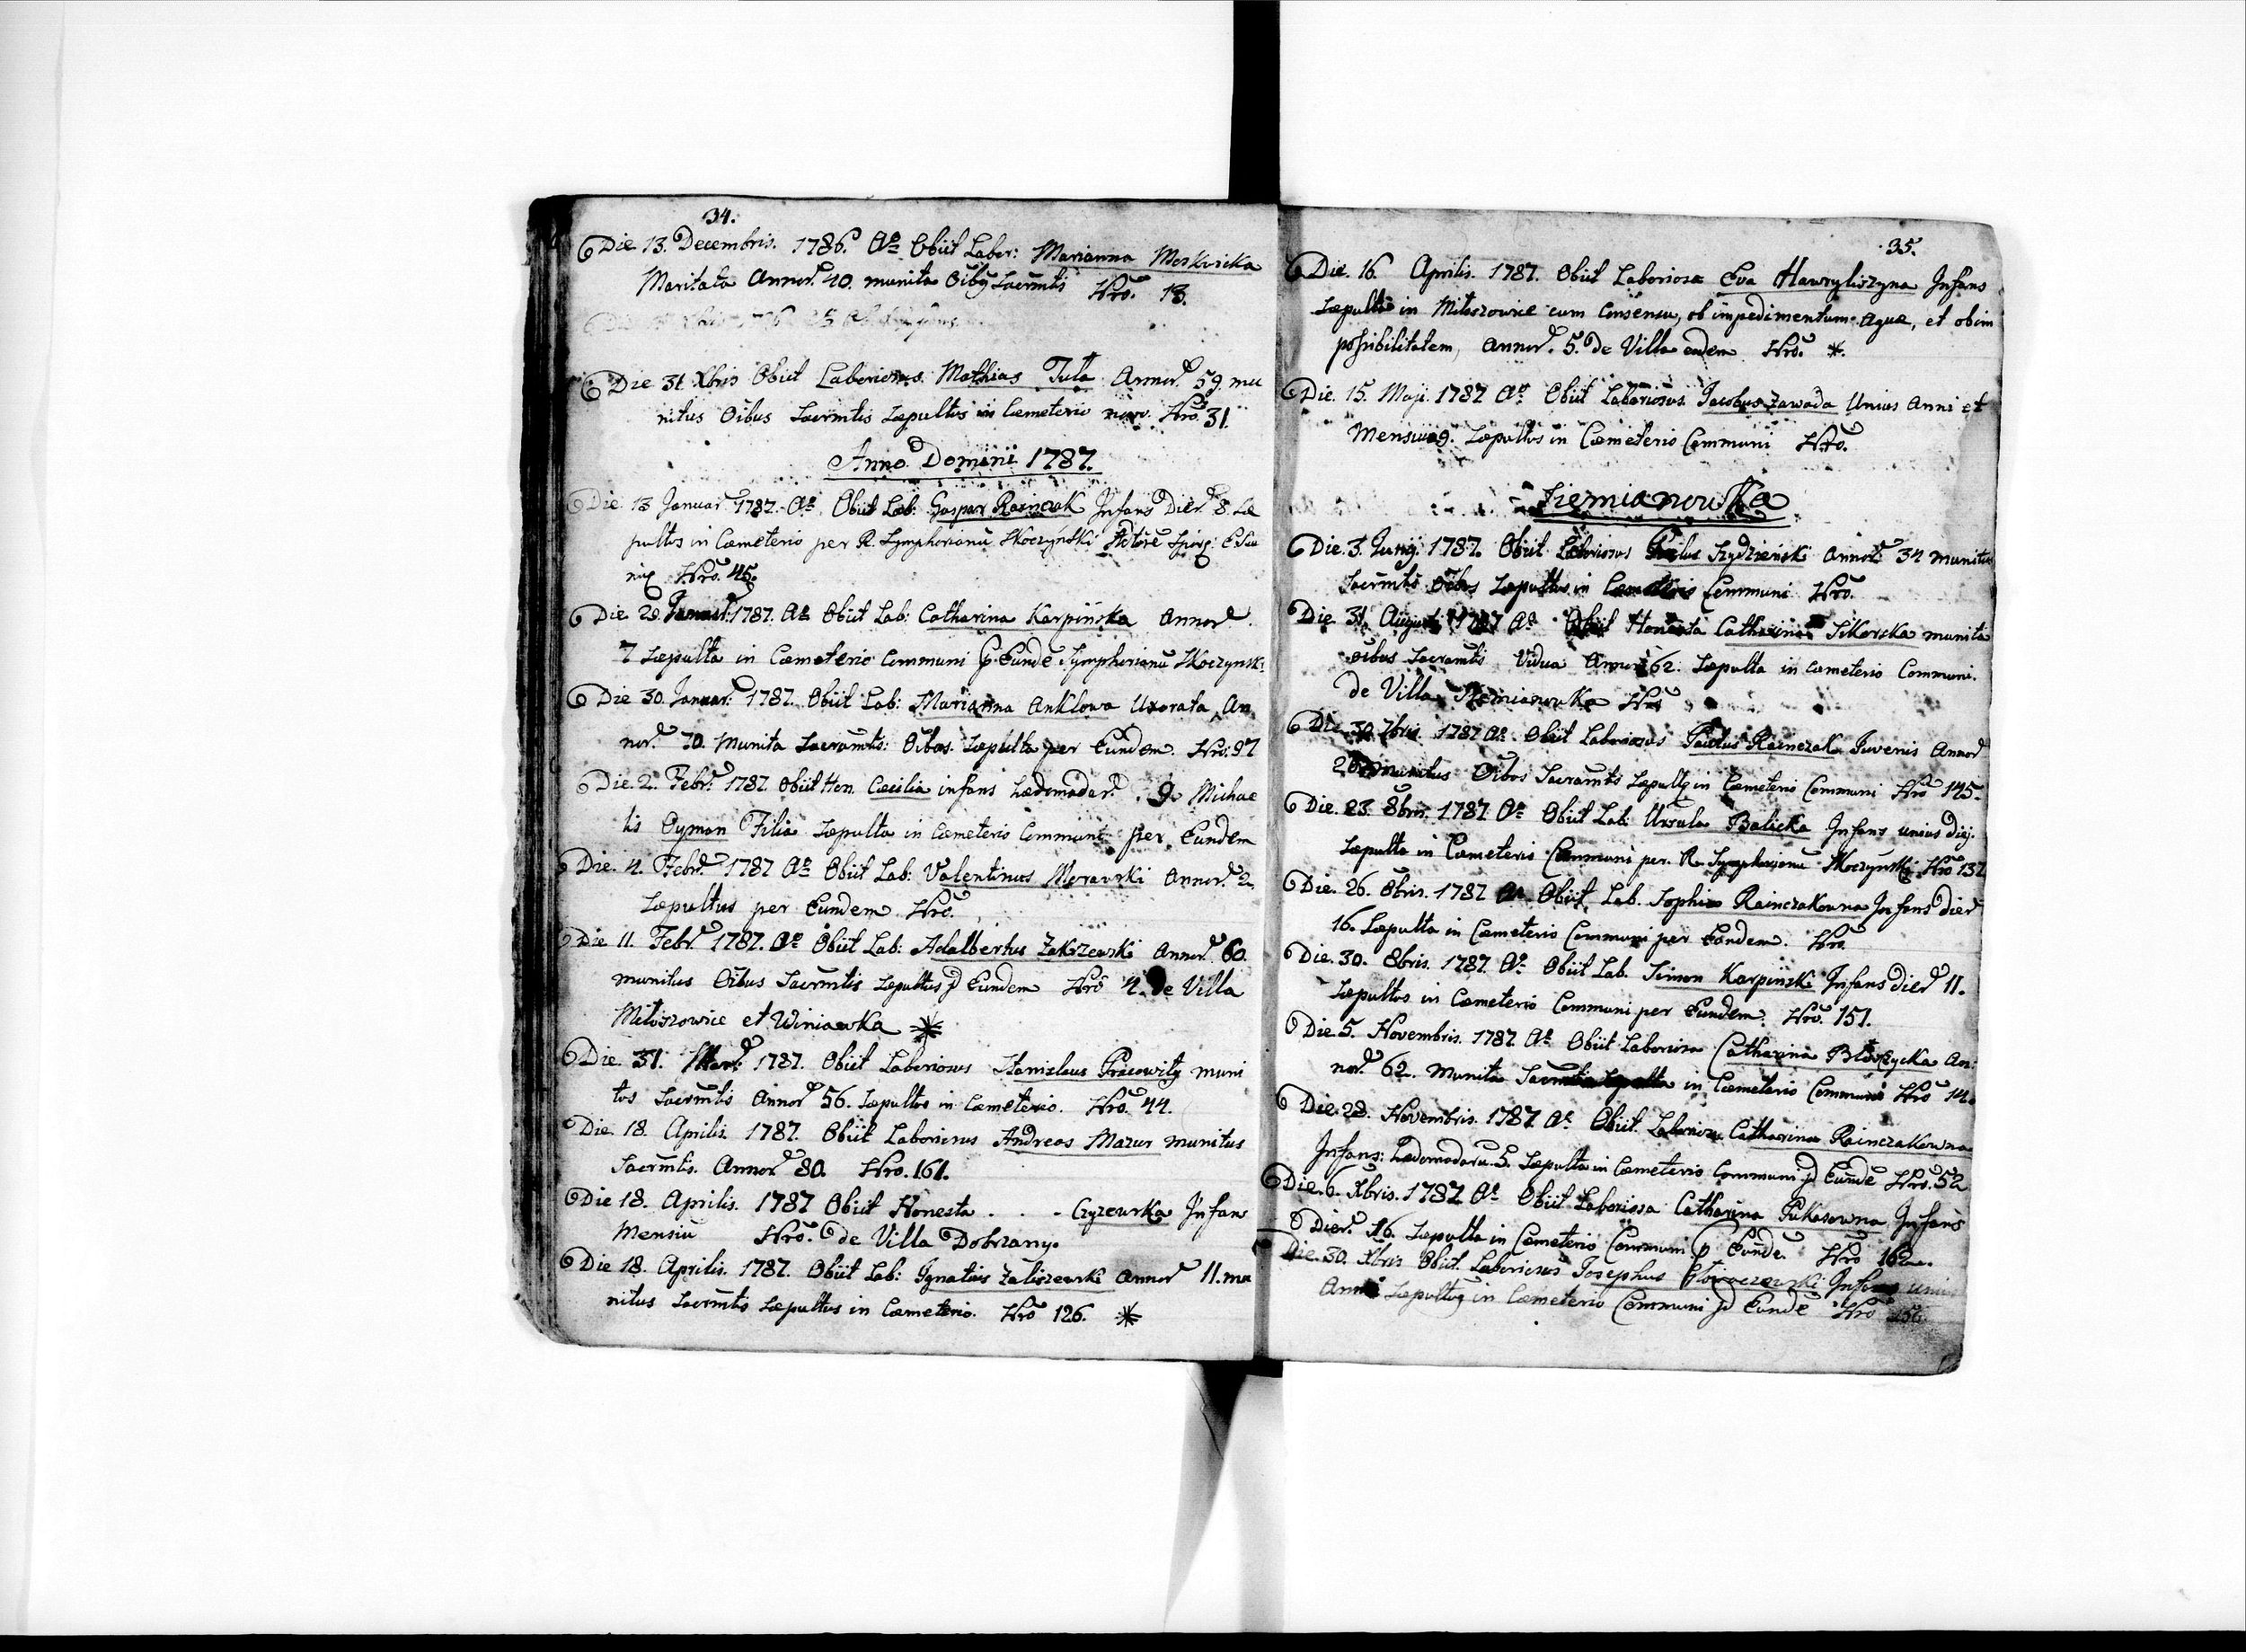 34.
Die 13. Decembris. 1786. Ao Obiit Labor: Marianna Moskvicka
Maritata Annor. 40. munita Oibg Sacrmtis Nro. 13.
Die 31. Xbris Obiit Laboriosus Mathias Tuta Annor. 59. mu
nitus Oibus Sacrmtis Sepultus in Cæmeterio novo. Nro. 31.
Anno Domini 1787.
Die 13 Januar 1787. Ao Obiit Lab: Gaspar Rainczak Infans Dier. 8. Se
pultus in Cæmeterio per R. Symphorianu Skoczyński
Nro. 45.
Die 29. Januar: 1787. Ao Obiit Lab: Catharina Karpińska Annor.
7 Sepulta in Cæmeterio Communi p Eunde Symphorianu Skoczynski
Die 30. Januar: 1787. Obiit Lab: Marianna Anklowa Uxorata, An
nor. 70. Munita Sacramts: Oibus. Sepulta per Eundem. Nro. 97
Die. 2. Febr: 1787. Obiit Hon. Cæcilia infans hædomadar. 9. Michae
lis Oyman Filia Sepulta in Cæmeterio Communi per Eundem
Die. 4. Febr. 1787 Ao Obiit Lab: Valentinus Moravski Annor. 2.
Sepultus per Eundem Nro.
Die 11. Febr. 1787. Ao Obiit Lab: Adalbertus Zakrzewski Annor. 60.
munitus Oibus Sacrmtis Sepultus p Eundem Nro 4. de Villa
Miłoszowice et Winiawka *
Die. 31. Mart. 1787. Obiit Laboriosus Stanislaus Pracowity muni
tus Sacrmtis Annor 56. Sepultus in Cæmeterio. Nro. 44.
Die 18. Aprilis. 1787. Obiit Laboriosus Andreas Mazur munitus
Sacrmtis. Annor 80. Nro. 161.
Die 18. Aprilis. 1787 Obiit Honesta . . . Czyzewska Infans
Mensiu Nro. de Villa Dobrzany.
Die 18. Aprilis. 1787. Obiit Lab: Ignatius Zaliszewski Annor 11. mu
nitus Sacrmtis Sepultus in Cæmeterio. Nro 126. *
35.
Die. 16. Aprilis. 1787. Obiit Laboriosa Eva Hawryliszyna Infans
Sepulta in Miłoszowice cum Consensu, ob impedimentum Aquæ, et obim
possibilitatem, Annor. 5. de Villa eadem Nro. *.
Die. 15. Maji. 1787 Ao Obiit Laboriosus Jacobus Zawada Unius Anni et
Mensiu 9. Sepultus in Cæmeterio Communi Nro.
Siemianowka
Die. 3. Junij. 1787. Obiit Laboriosus Szydzieński Annor. 34 munitus
Sacrmtis Oibus Sepultus in Cæmeterio Communi Nro.
Die 31. Augusti 1787 Ao Obiit Honesta Catharina Sikorska munita
oibus Sacramtis Vidua Annor 62. Sepulta in Cæmeterio Communi.
de Villa Siemianowka Nro
Die. 30. 7bris. 1787 Ao. Obiit Laboriosus Paulus Rainczak Juvenis Annor
26 munitus Oibus Sacramts Sepultg in Cæmeterio Communi Nro 145.
Die. 23. 8bris. 1787. Ao Obiit Lab. Ursula Balicka Infans unius diej.
Sepulta in Cæmeterio Communi per R. Symphorianu Skoczyński Nro 137
Die. 26. 8bris. 1787 Ao Obiit. Lab. Sophia Rainczakowna Infans dier
16. Sepulta in Cæmeterio Communi per Eundem. Nro.
Die. 30. 8bris. 1787. Ao. Obiit Lab. Simon Karpinski Infans dier 11.
Sepultus in Cæmeterio Communi per Eundem. Nro. 151.
Die. 5. Novembris. 1787. Ao Obiit Laboriosa Catharina An:
nor. 62. Munita Sacrmtis Sepulta in Cæmeterio Communi Nro 14.
Die. 28. Novembris. 1787. Ao Obiit. Laboriosa Catharina Rainczakowna
Infans: hædomadaru. 5. Sepulta in Cæmeterio Communi p Eunde Nro. 52
Die. 6. Xbris. 1787. Ao Obiit Laboriosa Catharina Infans
Dier. 16. Sepulta in Cæmeterio Communi p Eunde. Nro 162.
Die. 30. Xbris Obiit. Laboriosus Josephus Infans unius
Anni Sepultus in Cæmeterio Communi p Eunde Nro